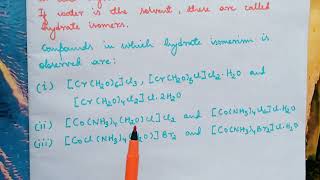 If water is the solvent, these are called
hydrate isomers.
Compounds in which hydrate isomerism is
observed are:
(i) [Cr(H2O)6]Cl3, [Cr(H2O)5Cl]Cl2·H2O and
[Cr(H2O)4Cl2]Cl·2H2O
(ii) [Co(NH3)4(H2O)Cl]Cl2 and [Co(NH3)4Cl2]Cl·H2O
(iii) [CoCl(NH3)4(H2O)]Br2 and [Co(NH3)4Br2]Cl·H2O